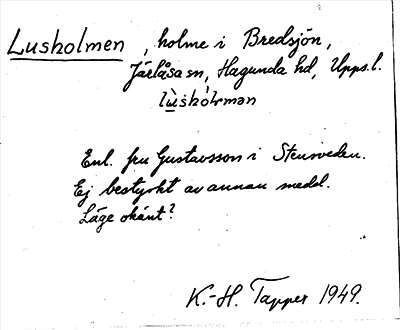 Lusholmen, holme i Bredsjön,
Järlåsa sn, Hagunda hd, Upps. l.
lùshòlmən
Enl. fru Gustavsson i Stensveden.
Ej bestyrkt av annan medd.
Läge okänt?
K.-H. Tapper 1949.